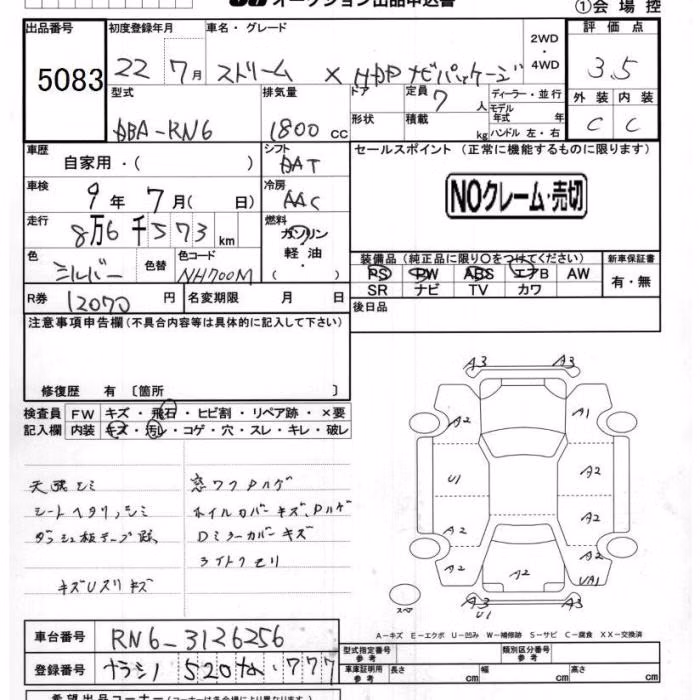 オークション出品申込書
①会場控
出品番号 初度登録年月 車名・グレード 2WD・4WD 評価点
5083 22 7月 ストリーム X HDDナビパッケージ 3.5
型式 排気量 ドア 定員 7 人 ディーラー・並行 外装 内装
DBA-RN6 1800 cc 形状 積載 kg モデル年式 年 ハンドル 左・右 C C
車歴 自家用・( ) シフト DAT セールスポイント (正常に機能するものに限ります)
車検 9年 7月( 日) 冷房 AAC NOクレーム・売切
走行 8万6千573km 燃料 ガソリン 軽油・( )
色 シルバー 色替 色コード NH700M 装備品 (純正品に限り○をつけてください) 新車保証書
PS PW ABS エアB AW 有・無
SR ナビ TV カワ
R券 12070円 名変期限 月 日 後日品
注意事項申告欄(不具合内容等は具体的に記入して下さい)
修復歴 有〔箇所 〕
検査員 FW キズ・飛石・ヒビ割・リペア跡・×要
記入欄 内装 キズ・汚レ・コゲ・穴・スレ・キレ・破レ
天張シミ 窓ワクハゲ
シートヘタリ、シミ ホイルカバーキズ、ハゲ
ダッシュ板テープ跡 Dミラーカバーキズ
ライトクモリ
キズUスリキズ
A3 A3
A2 A1
U1 A2
A2 A2
A2 A2 UA1
スペア A3 U1 A3
A-キズ E-エクボ U-凹み W-補修跡 S-サビ C-腐食 XX-交換済
車台番号 RN6-3126256
登録番号 ナラシノ 520 な・777
型式指定番号 参考 類別区分番号 参考
車庫証明用 参考 長さ cm 幅 cm 高さ cm
希望出品コーナー